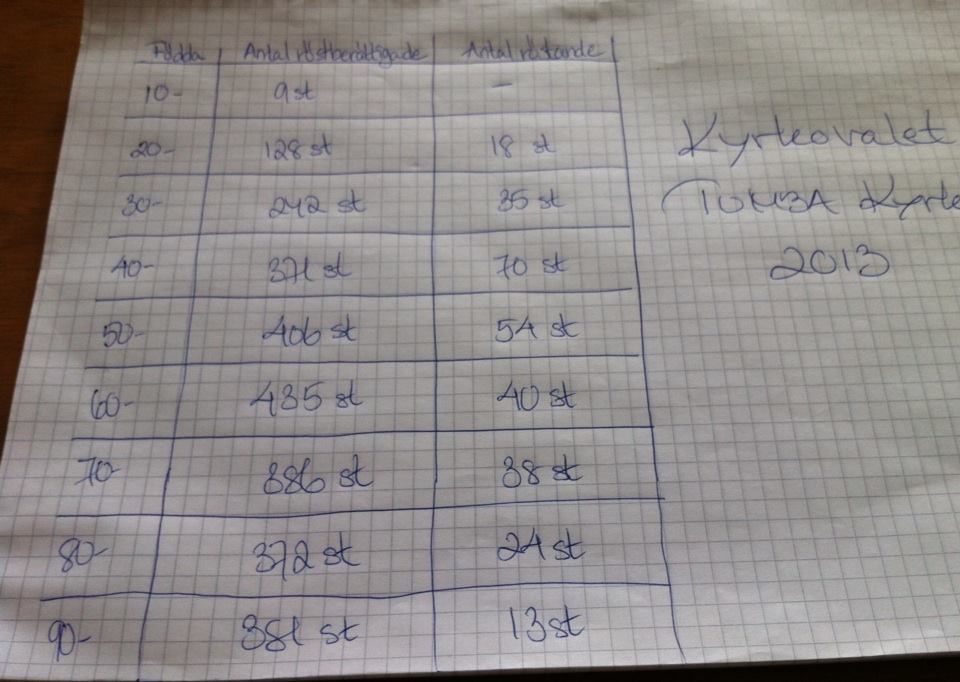 Födda Antal röstberättigade Antal röstande
10- 9 st -
20- 128 st 18 st
30- 242 st 35 st
40- 371 st 70 st
50- 406 st 54 st
60- 435 st 40 st
70- 386 st 38 st
80- 372 st 24 st
90- 381 st 13 st
Kyrkovalet
TUMBA Kyrk
2013